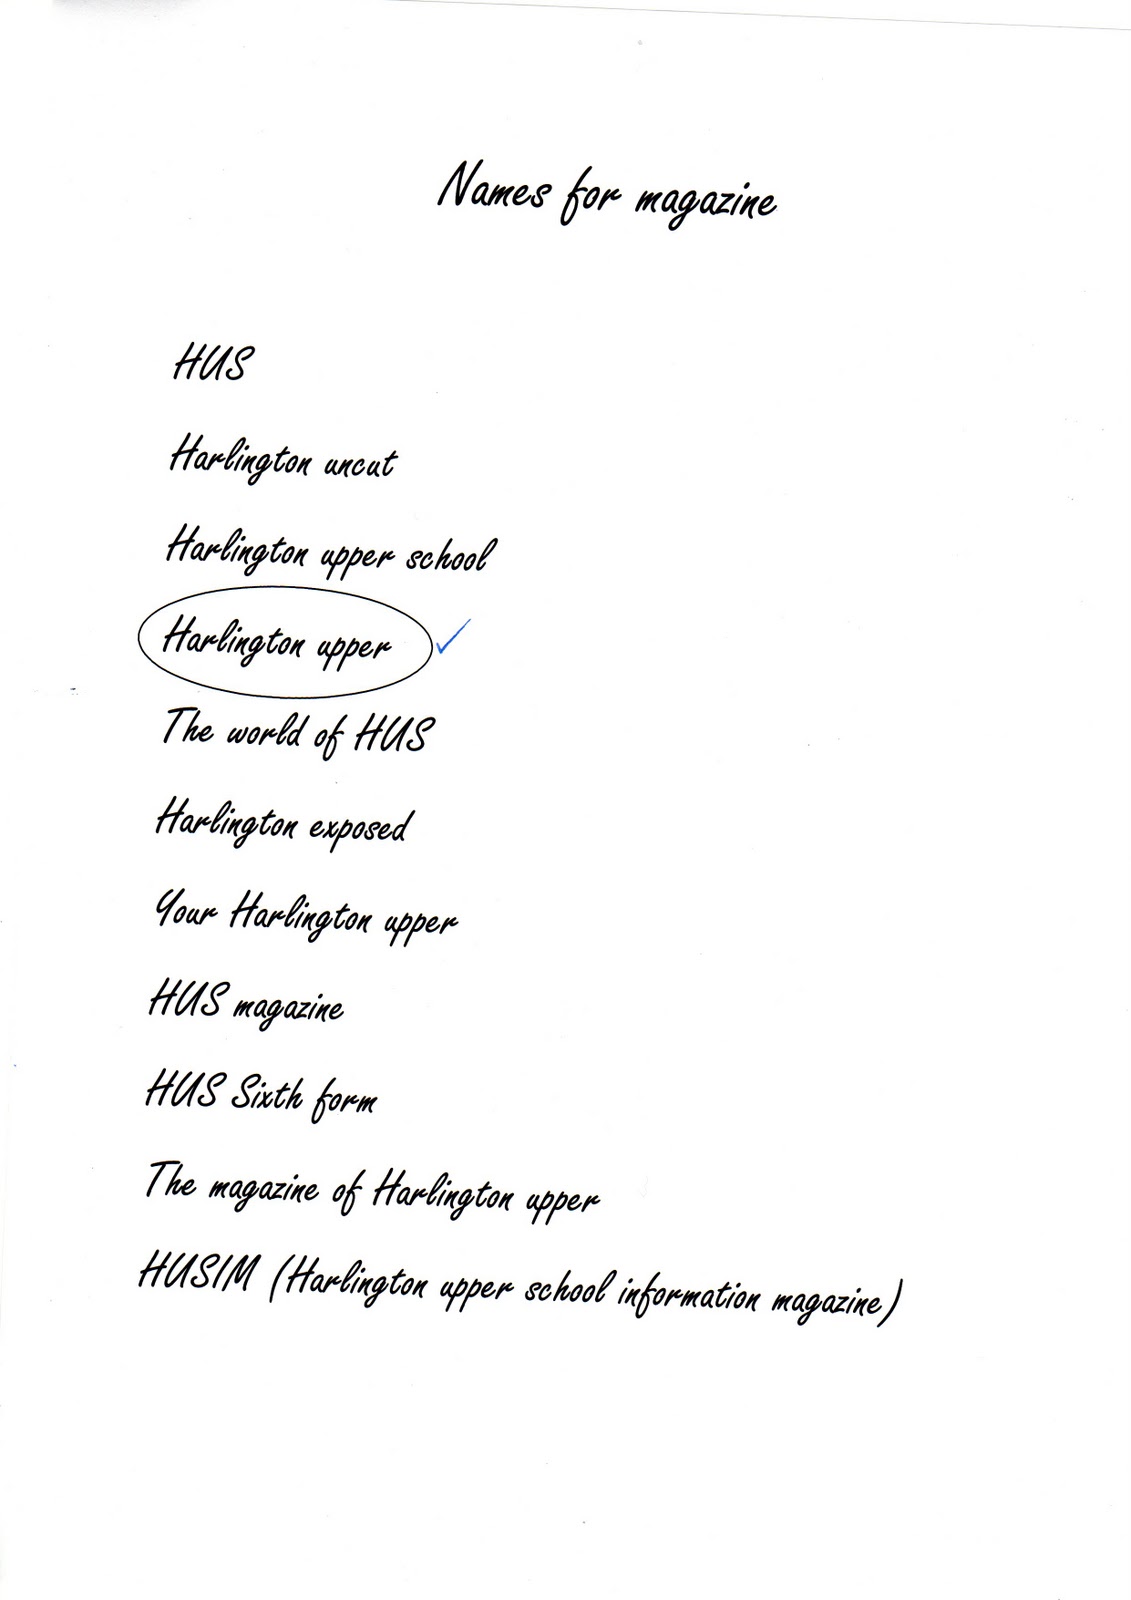 Names for magazine
HUS
Harlington uncut
Harlington upper school
Harlington upper
The world of HUS
Harlington exposed
Your Harlington upper
HUS magazine
HUS Sixth form
The magazine of Harlington upper
HUSIM (Harlington upper school information magazine)